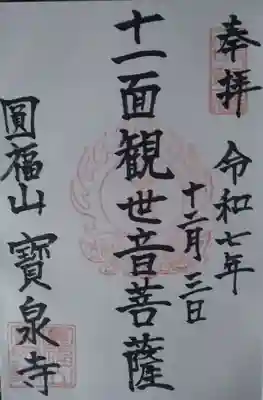 奉拝
令和七年
十二月三日
十一面観世音菩薩
圓福山 寶泉寺